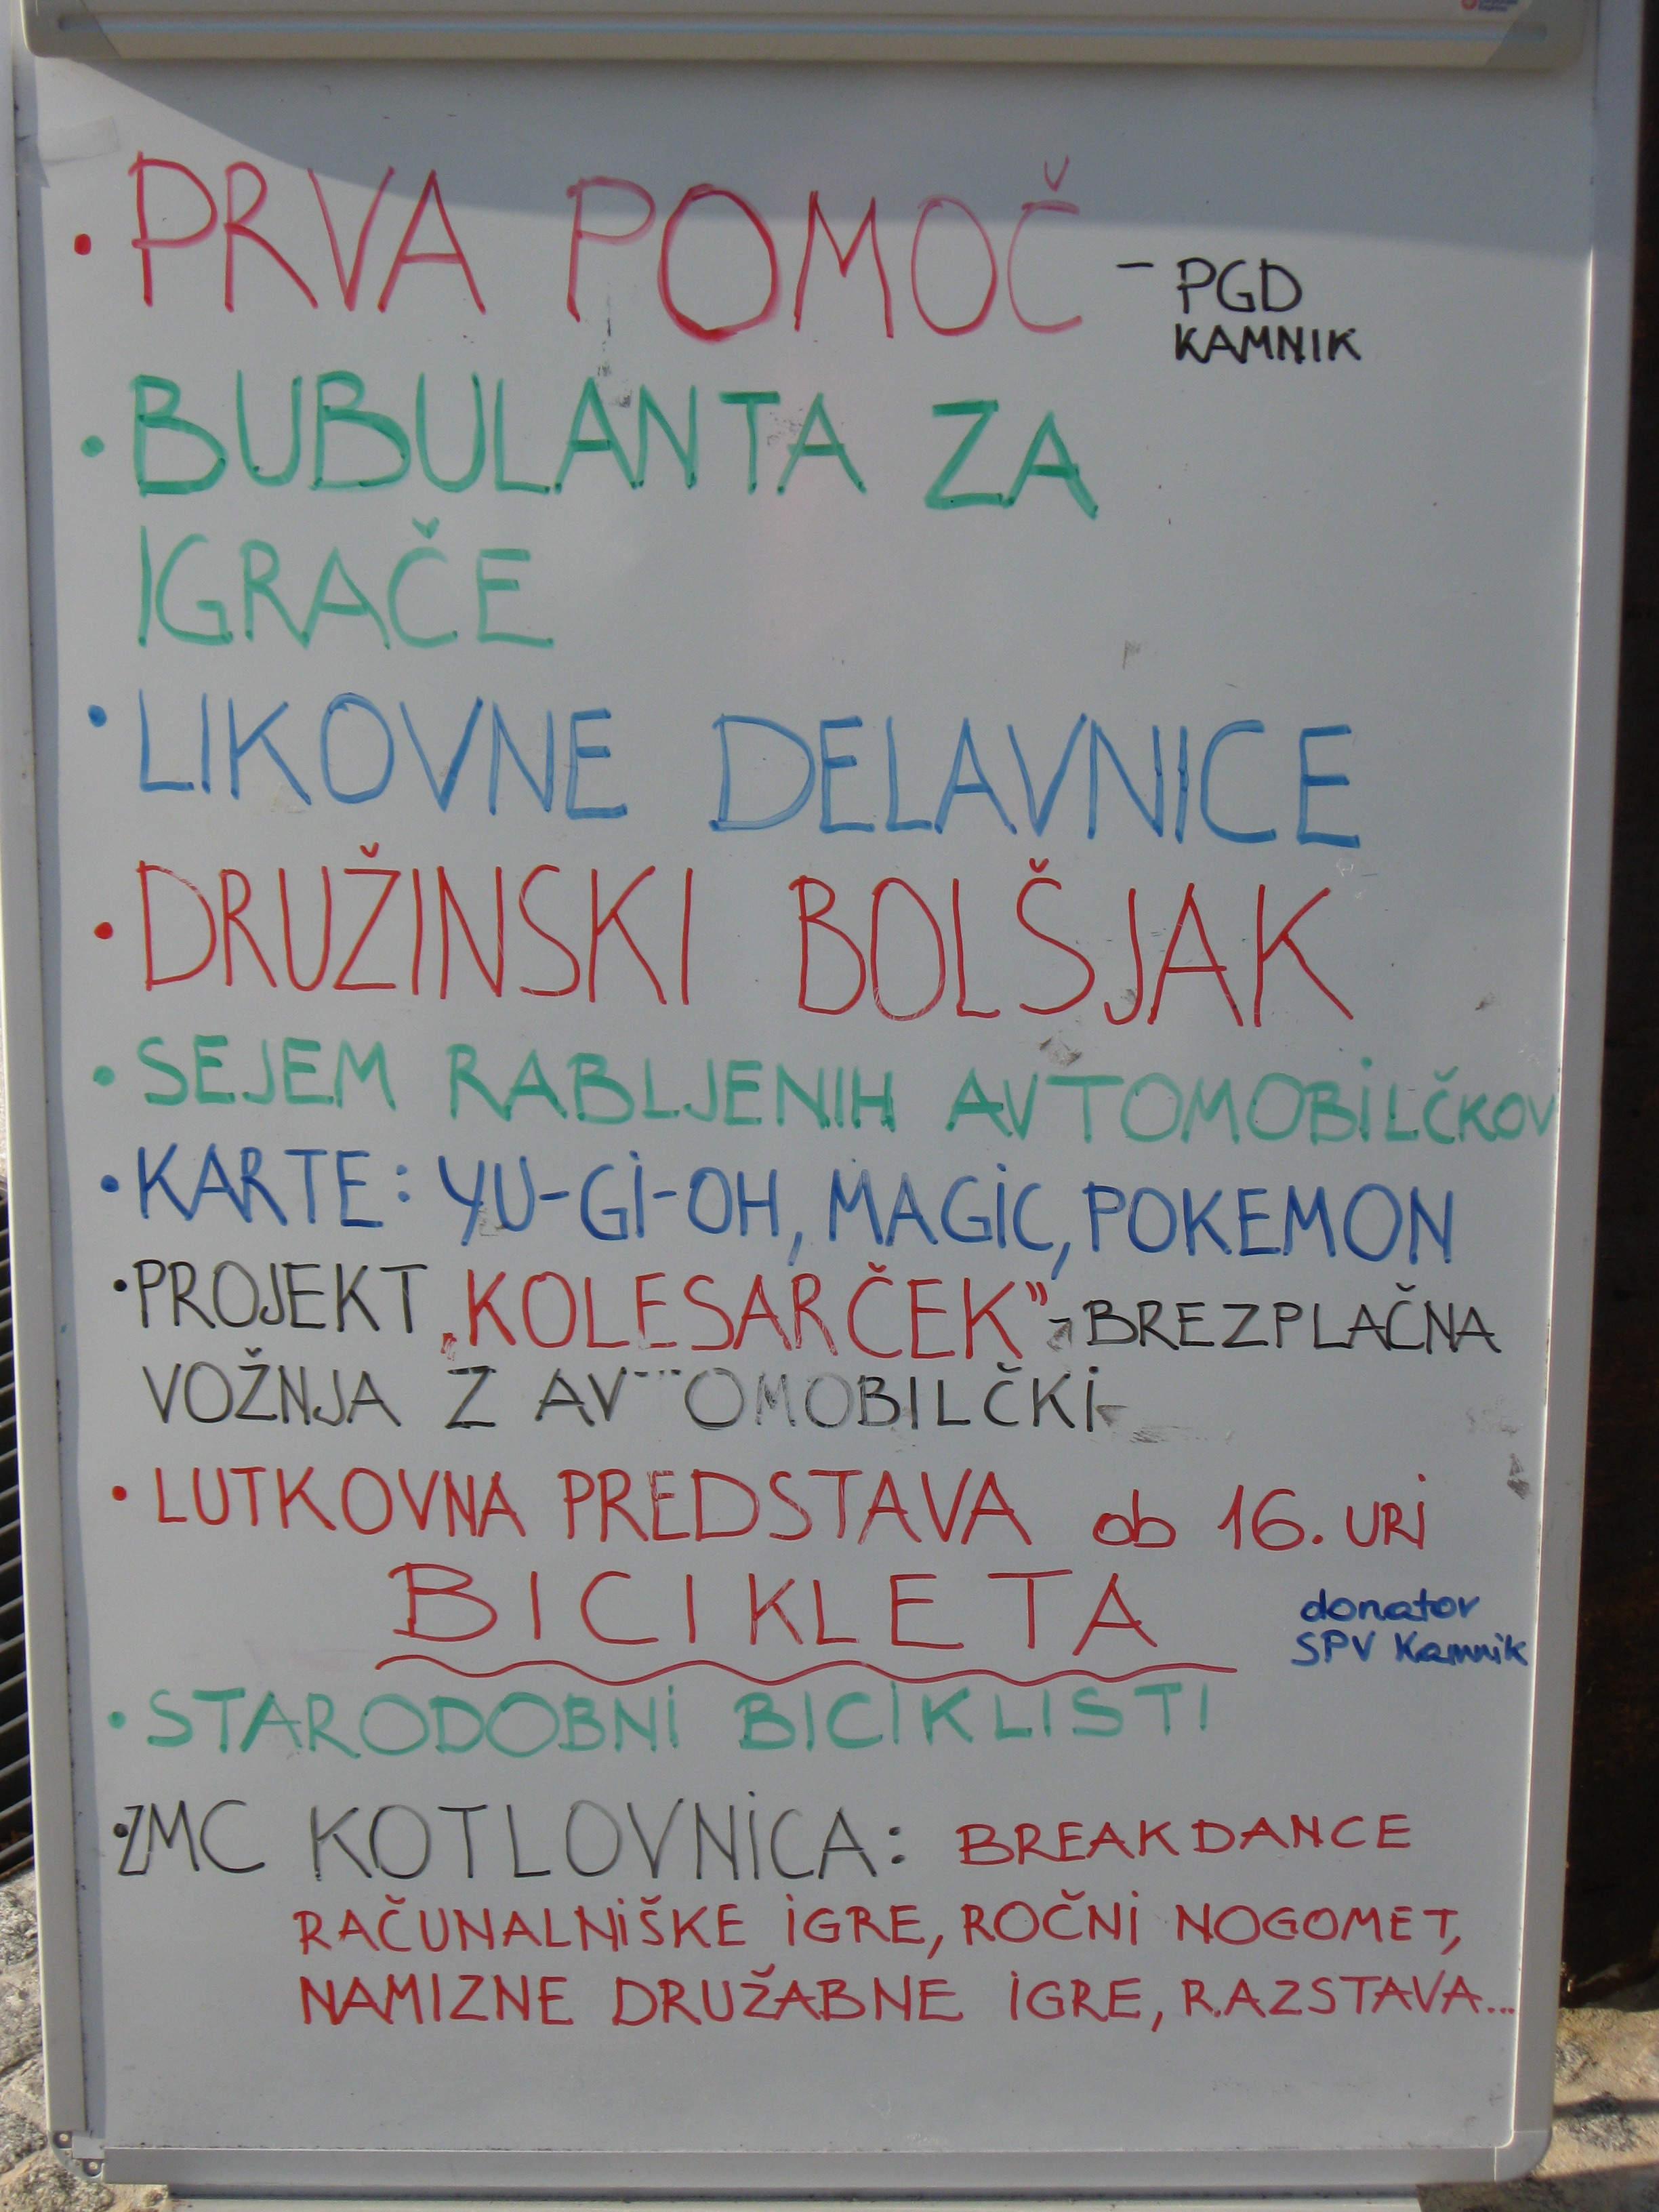 • PRVA POMOČ - PGD
KAMNIK
• BUBULANTA ZA
IGRAČE
• LIKOVNE DELAVNICE
• DRUŽINSKI BOLŠJAK
• SEJEM RABLJENIH AVTOMOBILČKOV
• KARTE: YU-GI-OH, MAGIC, POKEMON
• PROJEKT „KOLESARČEK" - BREZPLAČNA
VOŽNJA Z AVTOMOBILČKI
• LUTKOVNA PREDSTAVA ob 16. URI
BICIKLETA
donator
SPV Kamnik
• STARODOBNI BICIKLISTI
• ZMC KOTLOVNICA: BREAKDANCE
RAČUNALNIŠKE IGRE, ROČNI NOGOMET,
NAMIZNE DRUŽABNE IGRE, RAZSTAVA...